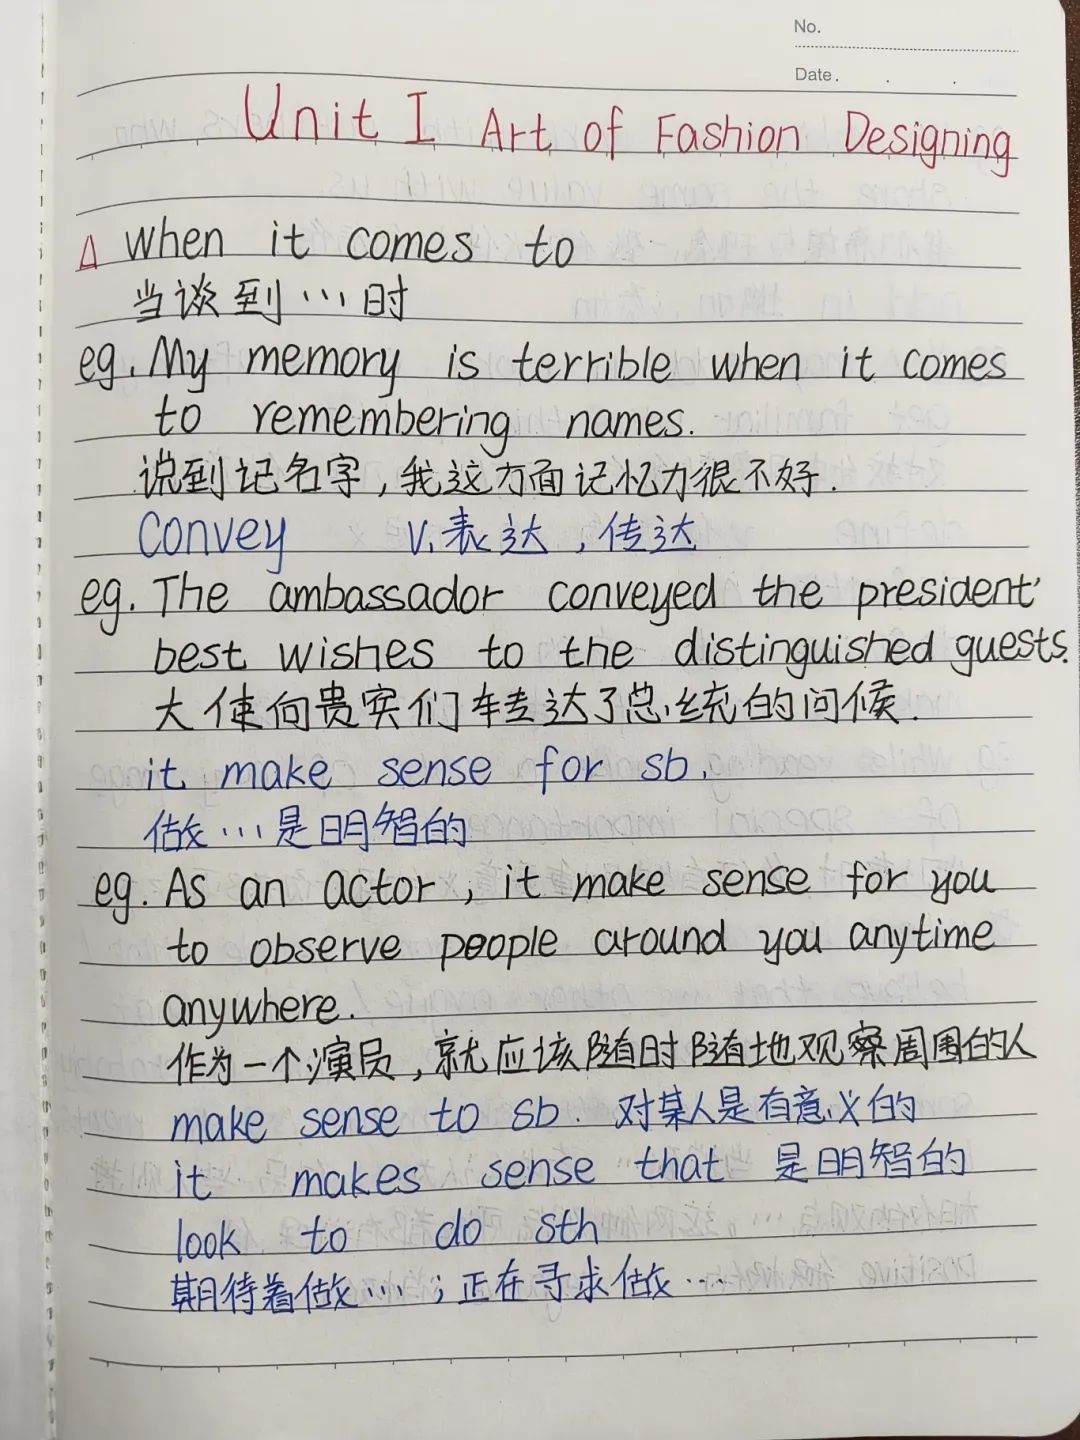 No.
Date. . .
Unit I Art of Fashion Designing
△ when it comes to
当谈到…时
eg. My memory is terrible when it comes
to remembering names.
说到记名字,我这方面记忆力很不好.
convey v.表达,传达
eg. The ambassador conveyed the president'
best wishes to the distinguished guests.
大使向贵宾们转达了总统的问候.
it make sense for sb.
做…是明智的
eg. As an actor, it make sense for you
to observe people around you anytime
anywhere.
作为一个演员,就应该随时随地观察周围的人
make sense to sb. 对某人是有意义的
it makes sense that 是明智的
look to do sth
期待着做…;正在寻求做…